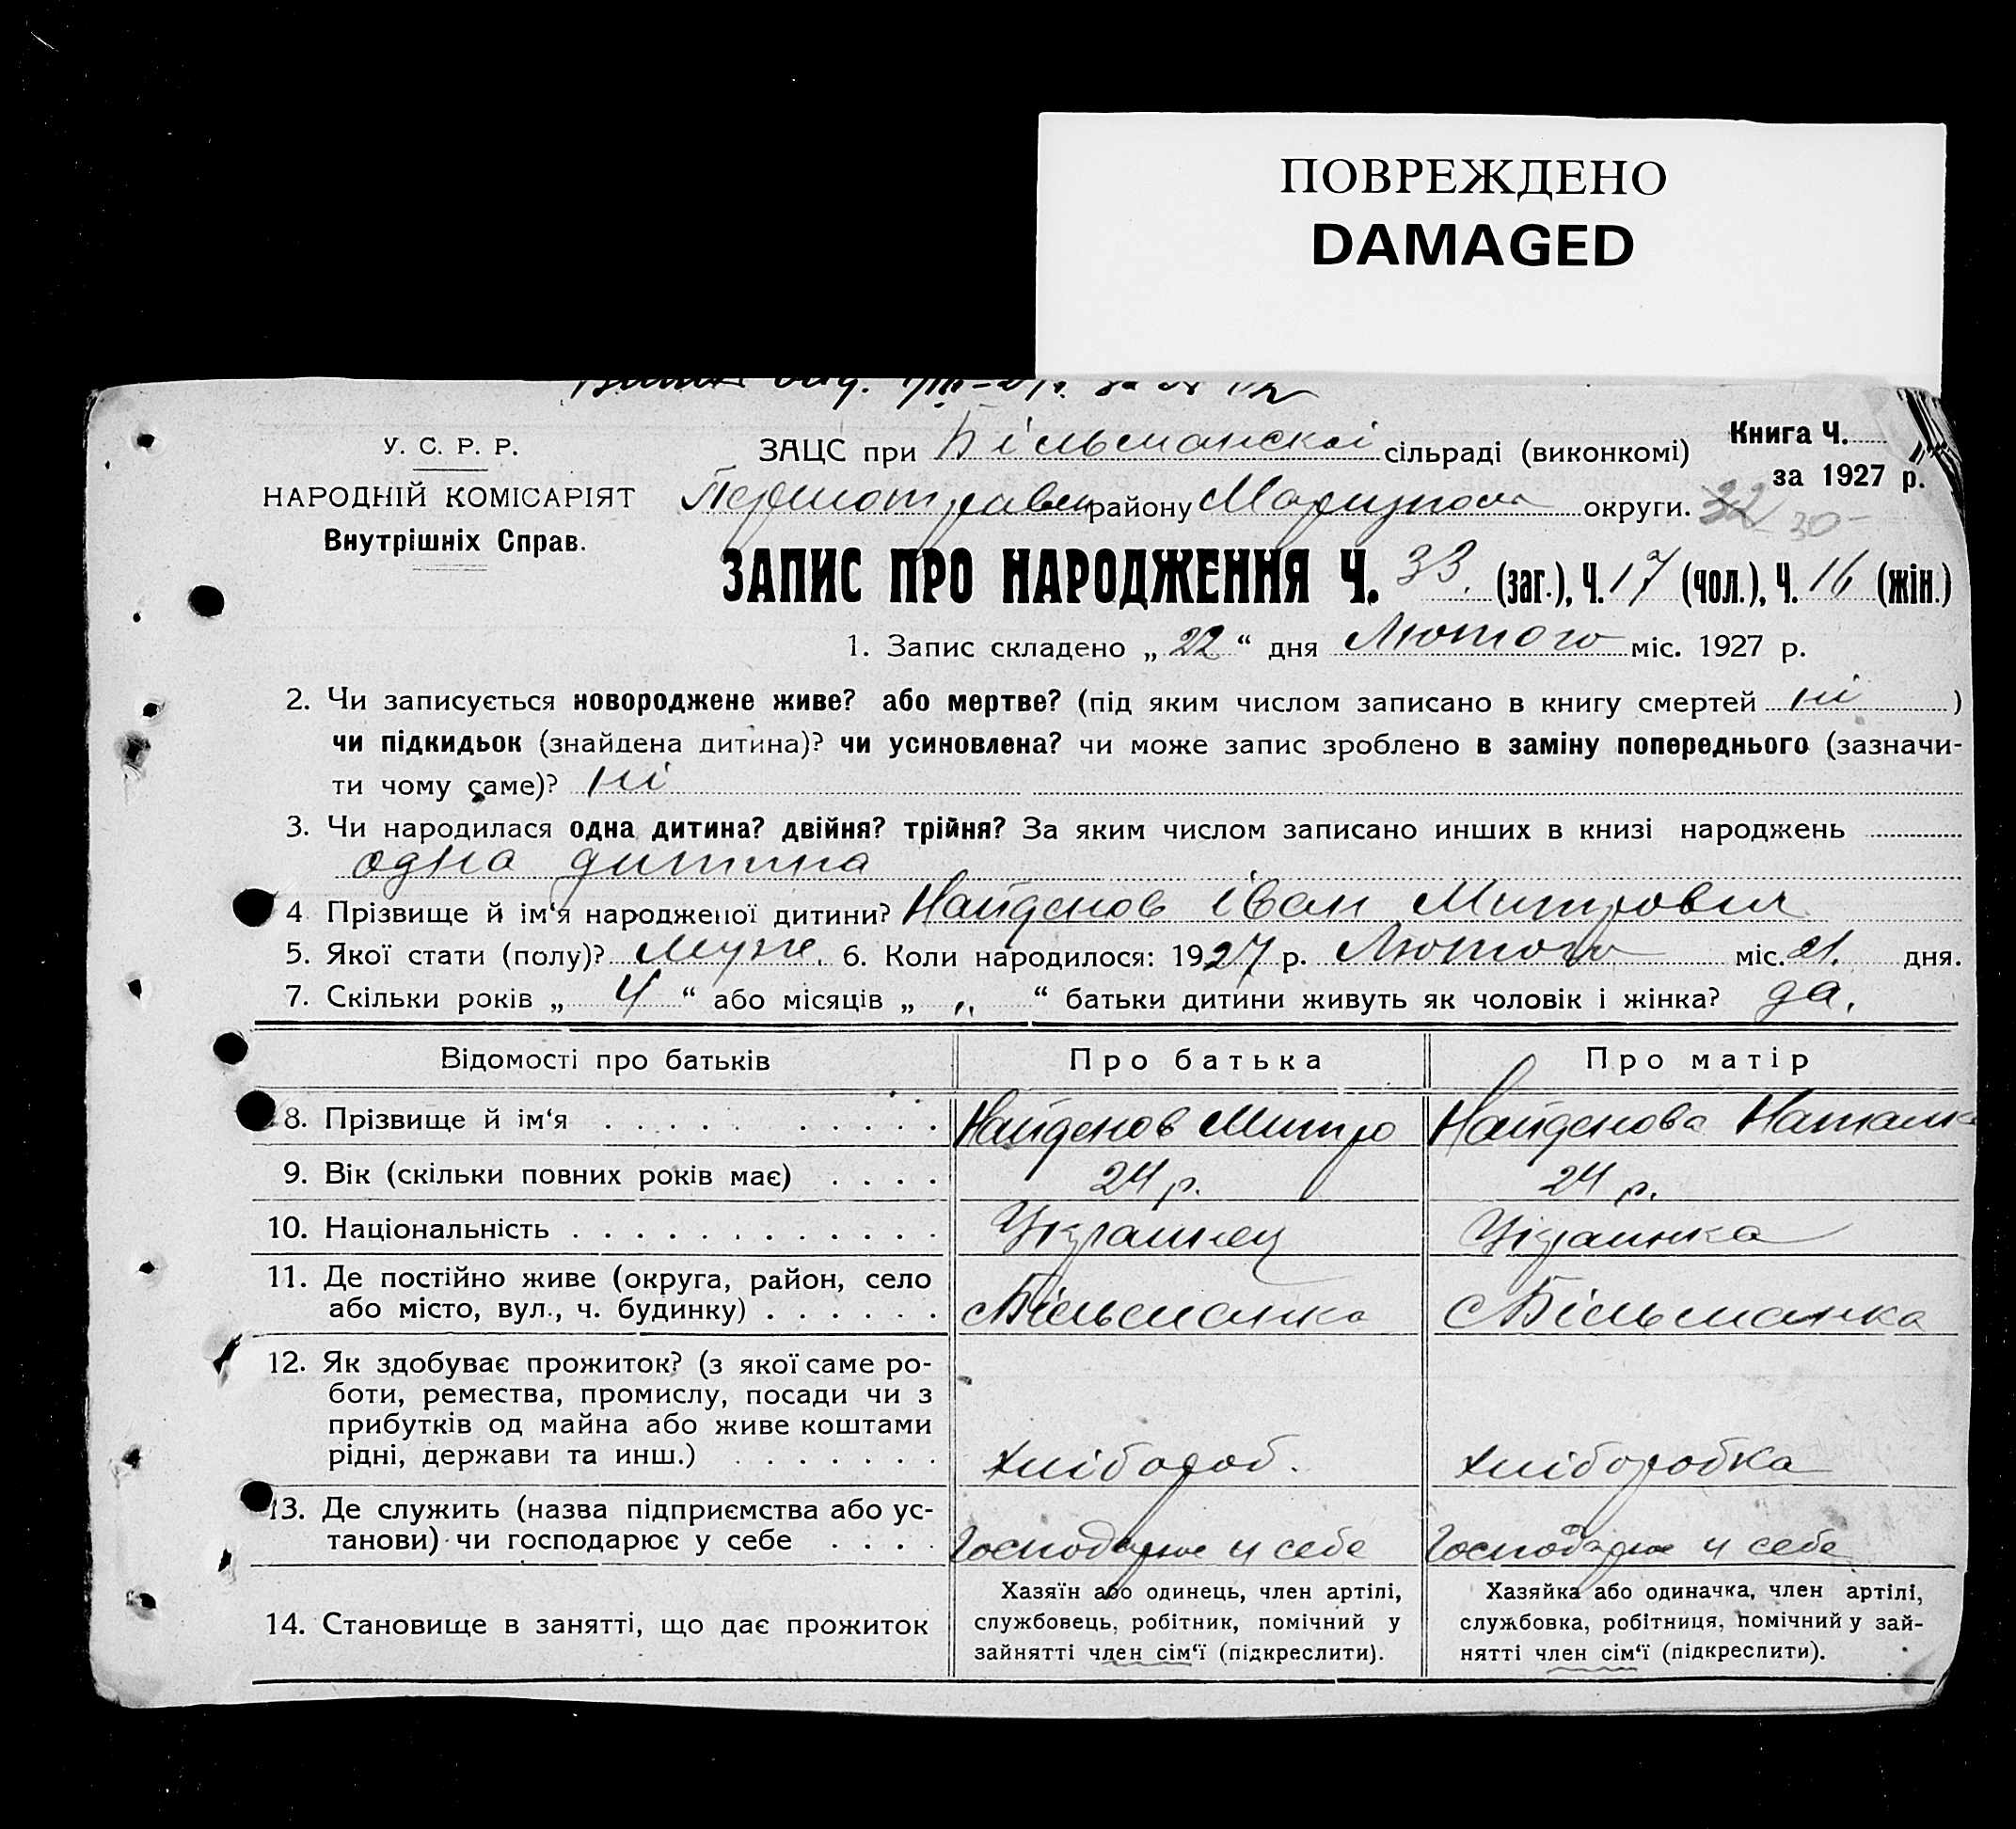 ПОВРЕЖДЕНО
DAMAGED
У. С. Р. Р.
НАРОДНІЙ КОМІСАРІЯТ
Внутрішніх Справ.
ЗАЦС при Більманскої сільраді (виконкомі)
Першотравен району Маріупола округи.
Книга Ч.
за 1927 р.
32 30
ЗАПИС ПРО НАРОДЖЕННЯ Ч. 33. (заг.), Ч. 17 (чол.), Ч. 16 (жін.)
1. Запис складено „ 22 “ дня Лютого міс. 1927 р.
2. Чи записується новороджене живе? або мертве? (під яким числом записано в книгу смертей ні )
чи підкидьок (знайдена дитина)? чи усиновлена? чи може запис зроблено в заміну попереднього (зазначи-
ти чому саме)? ні
3. Чи народилася одна дитина? двійня? трійня? За яким числом записано инших в книзі народжень
одна дитина
4 Прізвище й ім‘я народженої дитини? Найденов Іван Митрович
5. Якої стати (полу)? муж. 6. Коли народилося: 1927 р. Лютого міс. 21. дня.
7. Скільки років „ 4 “ або місяців „ „ “ батьки дитини живуть як чоловік і жінка? да.
Відомості про батьків Про батька Про матір
8. Прізвище й ім‘я Найденов Митро Найденова Наталка
9. Вік (скільки повних років має) 24 р. 24 р.
10. Національність Украинец Украинка
11. Де постійно живе (округа, район, село
або місто, вул., ч. будинку) с Більманка с Більманка
12. Як здобуває прожиток? (з якої саме ро-
боти, ремества, промислу, посади чи з
прибутків од майна або живе коштами
рідні, держави та инш.) хлібороб. хліборобка
13. Де служить (назва підприємства або ус-
танови) чи господарює у себе Господарює у себе Господарює у себе
14. Становище в занятті, що дає прожиток
Хазяїн або одинець, член артілі,
службовець, робітник, помічний у
зайнятті член сім‘ї (підкреслити).
Хазяйка або одиначка, член артілі,
службовка, робітниця, помічний у зай-
нятті член сім‘ї (підкреслити).